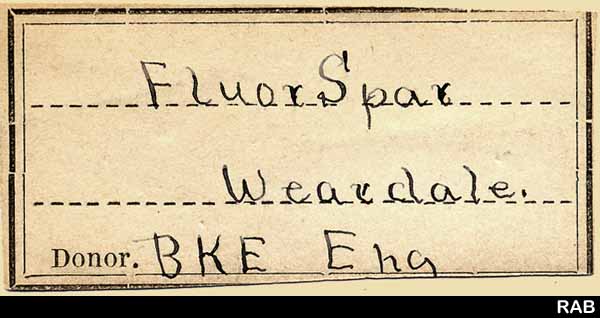 FluorSpar
Weardale.
Donor. BKE Eng
RAB